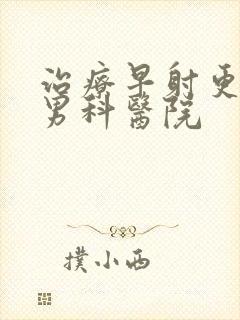 治療早射更
男科醫院
撲小西